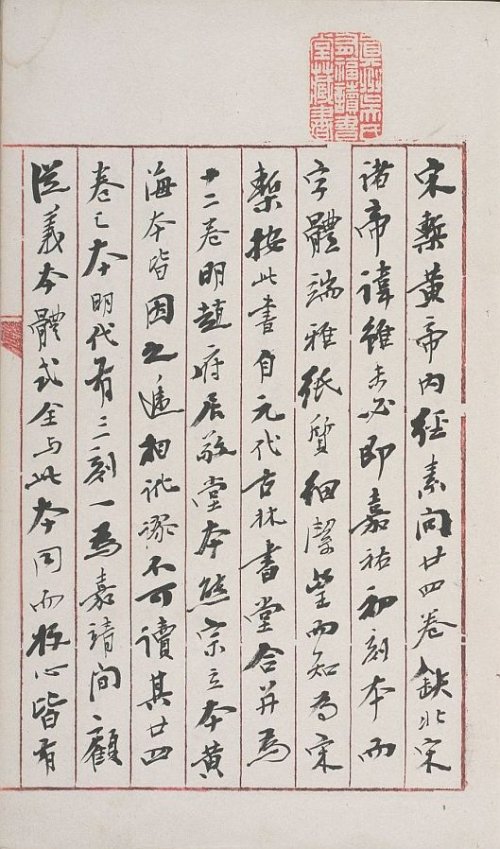 真州吳氏
有福讀書
堂藏書
宋槧黃帝内經素問廿四卷缺北宋
諸帝諱雖未必即嘉祐初刻本而
字體端雅紙質細潔望而知為宋
槧按此書自元代古林書堂合并為
十二卷明趙府居敬堂本熊宗立本黃
海本皆因之遞相訛謬不可讀其廿四
卷之本明代有二刻一為嘉靖間顧
從義本體式全与此本同而板心皆有